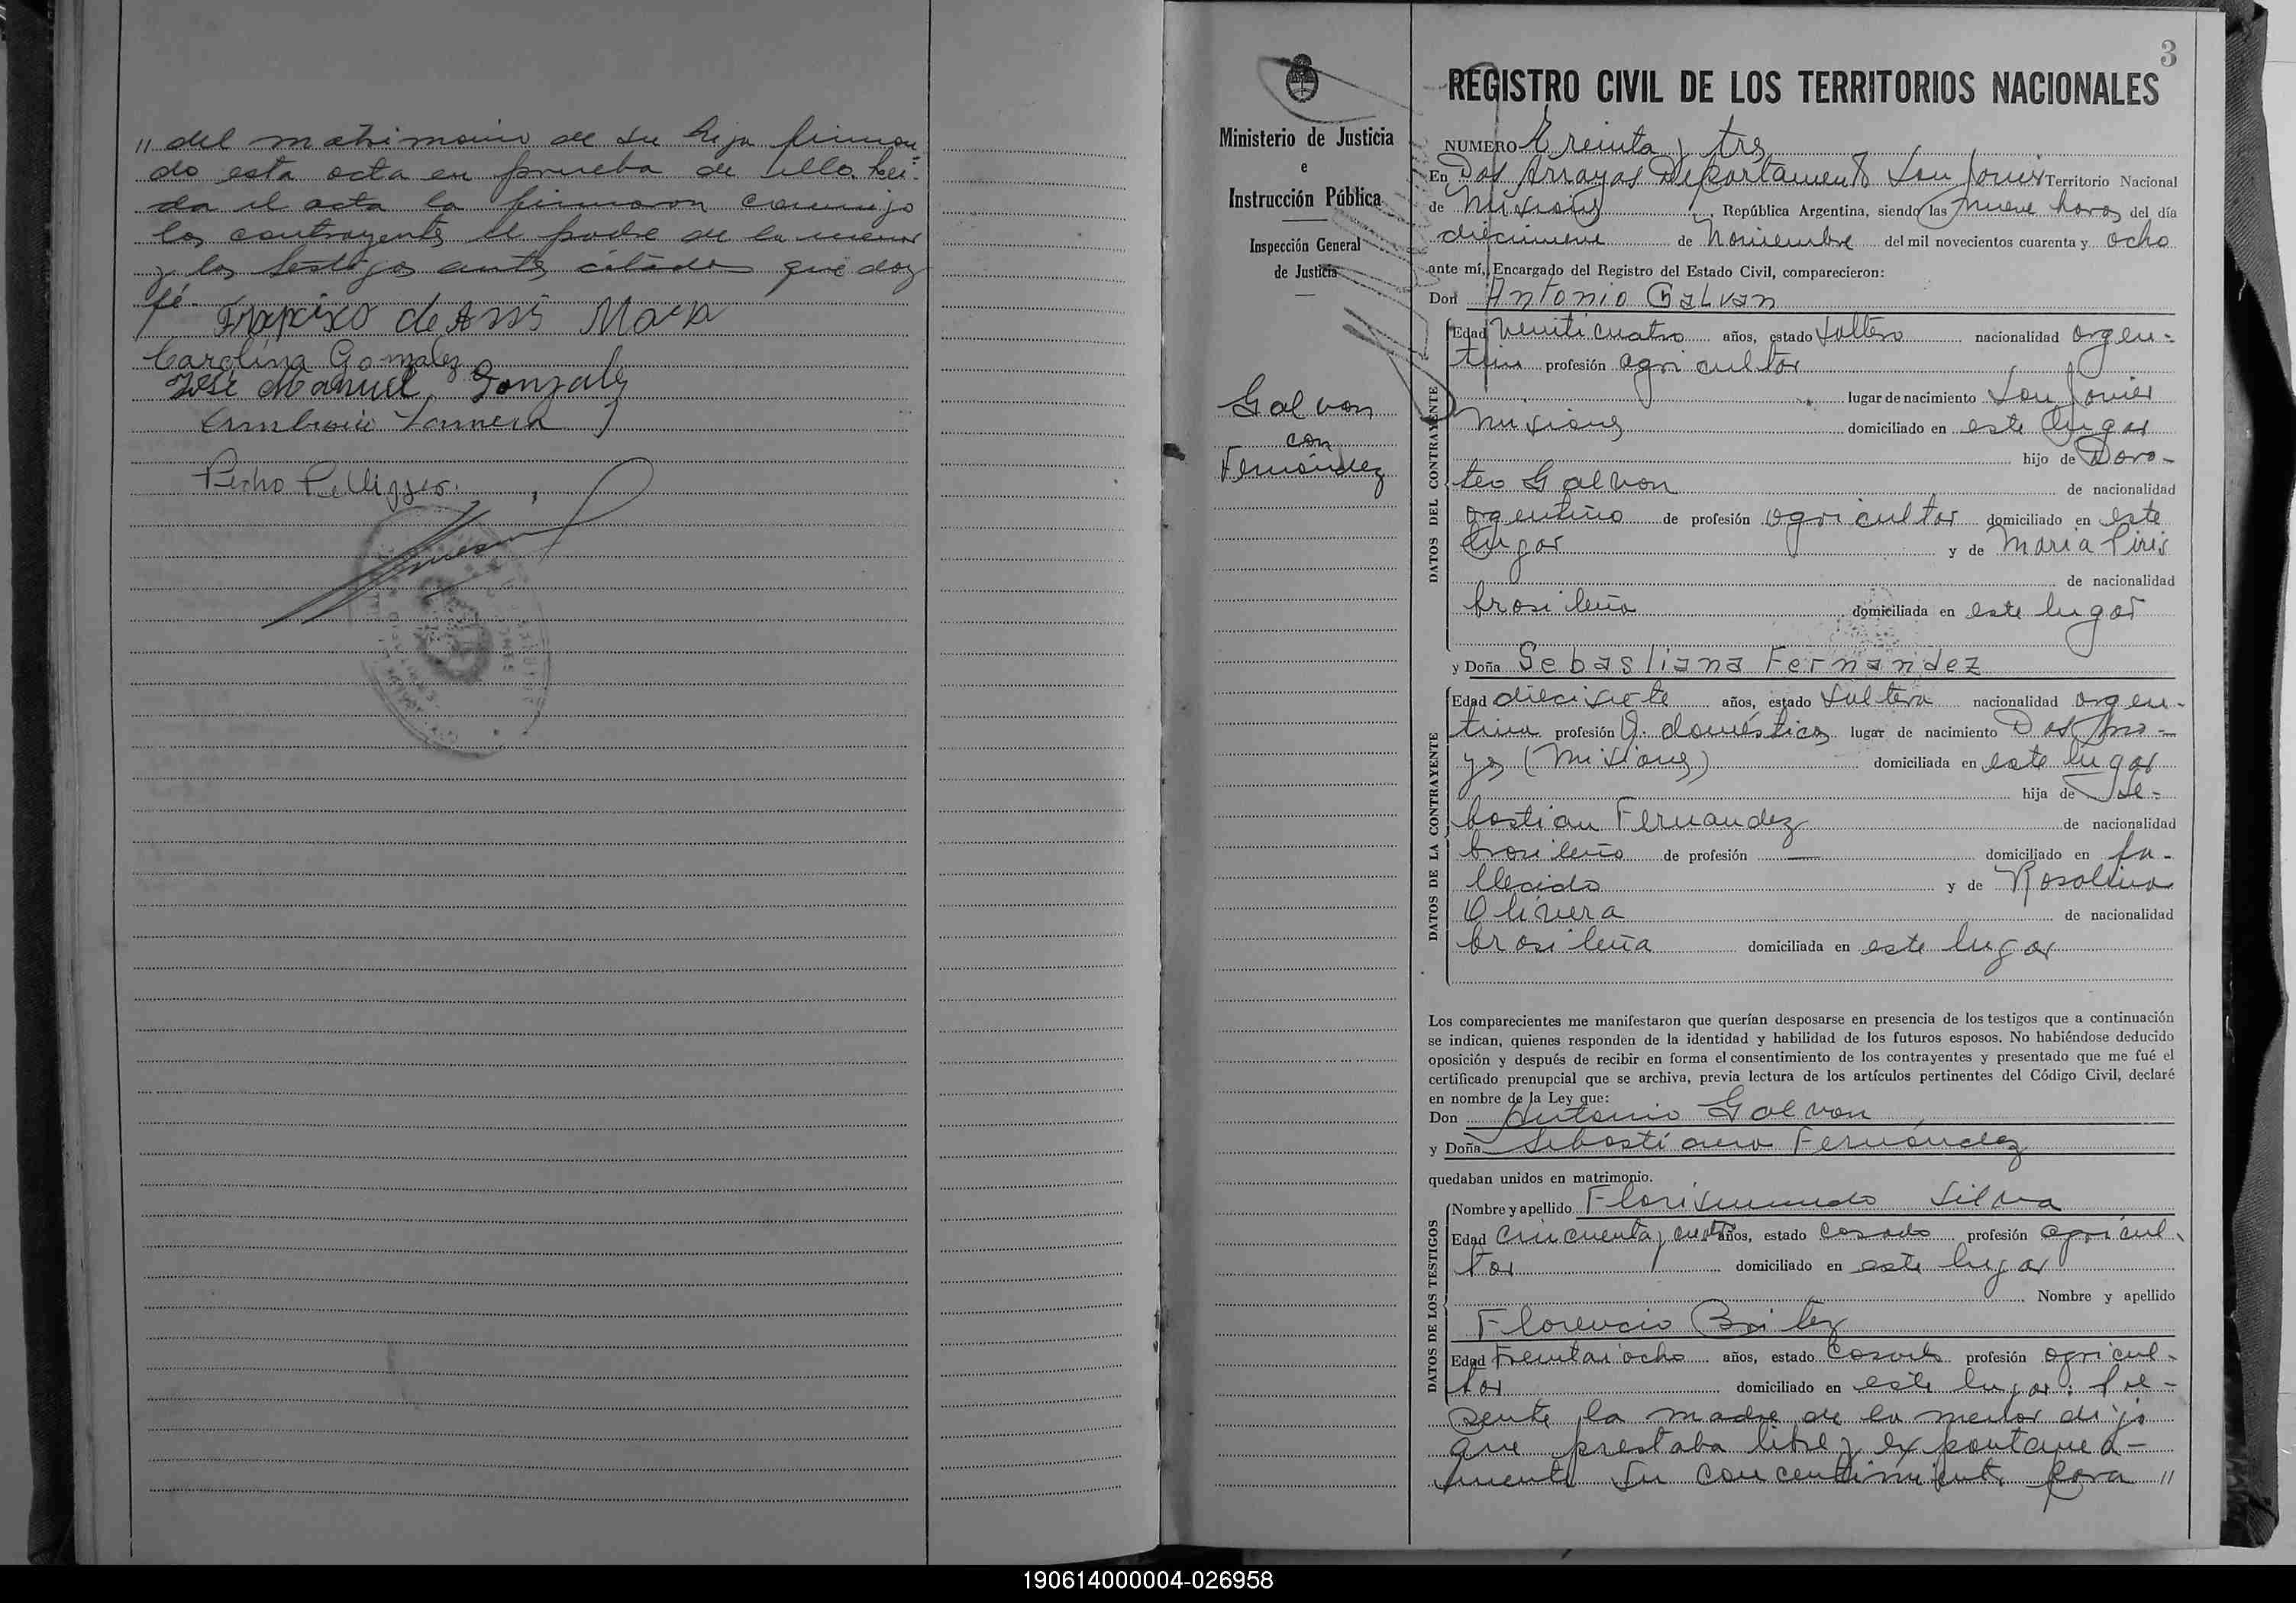 " del matrimonio de su hija firman-
do esta acta en prueba de ello. Lei-
da el acta la firmaron conmigo
los contrayentes el padre de la menor
y los testigos antes citados que doy
fé.
Francisco de Assis
Carolina Gomalez
José Manuel Gonzalez
Pedro
3
REGISTRO CIVIL DE LOS TERRITORIOS NACIONALES
Ministerio de Justicia
e
Instrucción Pública
Inspección General
de Justicia
Galvan
con
Fernández
NUMERO Treinta y tres
En Dos Arroyos Departamento San Javier Territorio Nacional
de Misiones, República Argentina, siendo las nueve horas del día
diecinueve de Noviembre del mil novecientos cuarenta y ocho
ante mí, Encargado del Registro del Estado Civil, comparecieron:
Don Antonio Galvan
DATOS DEL CONTRAYENTE
Edad veinticuatro años, estado soltero nacionalidad argen-
tina profesión agricultor
lugar de nacimiento San Javier
Misiones domiciliado en este lugar
hijo de Doro-
teo Galvan de nacionalidad
argentino de profesión agricultor domiciliado en este
lugar y de Maria Piris
de nacionalidad
brasileña domiciliada en este lugar
y Doña Sebastiana Fernandez
DATOS DE LA CONTRAYENTE
Edad diecisiete años, estado soltera nacionalidad argen-
tina profesión Q. domésticos lugar de nacimiento Dos Arro-
yos (Misiones) domiciliada en este lugar
hija de Se-
bastian Fernandez de nacionalidad
brasileño de profesión — domiciliado en fa-
llecido y de Rosalina
Olivera de nacionalidad
brasileña domiciliada en este lugar
Los comparecientes me manifestaron que querían desposarse en presencia de los testigos que a continuación
se indican, quienes responden de la identidad y habilidad de los futuros esposos. No habiéndose deducido
oposición y después de recibir en forma el consentimiento de los contrayentes y presentado que me fué el
certificado prenupcial que se archiva, previa lectura de los artículos pertinentes del Código Civil, declaré
en nombre de la Ley que:
Don Antonio Galvan
y Doña Sebastiana Fernández
quedaban unidos en matrimonio.
DATOS DE LOS TESTIGOS
Nombre y apellido Florismundo Silva
Edad cincuenta y cuatro años, estado casado profesión agricul-
tor domiciliado en este lugar
Nombre y apellido
Florencio Britez
Edad treintaiocho años, estado casado profesión agricul-
tor domiciliado en este lugar. Pre-
sente la madre de la menor dijo
que prestaba libre y expontanea-
mente su concentimiento para "
190614000004-026958